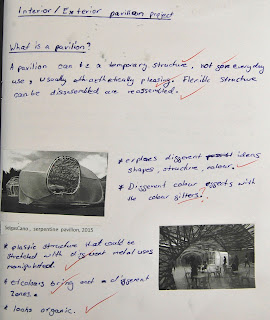 Interior / Exterior pavilion project
What is a pavilion?
A pavilion can be a temporary structure, not for everyday
use, usually aesthetically pleasing. Flexible structure
can be disassembled are reassembled.
* explores different ideas
shapes, structure, colour.
* Different colour effects with
the colour filters.
selgasCano , serpentine pavilion, 2015
* plastic structure that could be
stretched with different metal uses
manipulated.
* colours bring out a different
zones.
* looks organic.